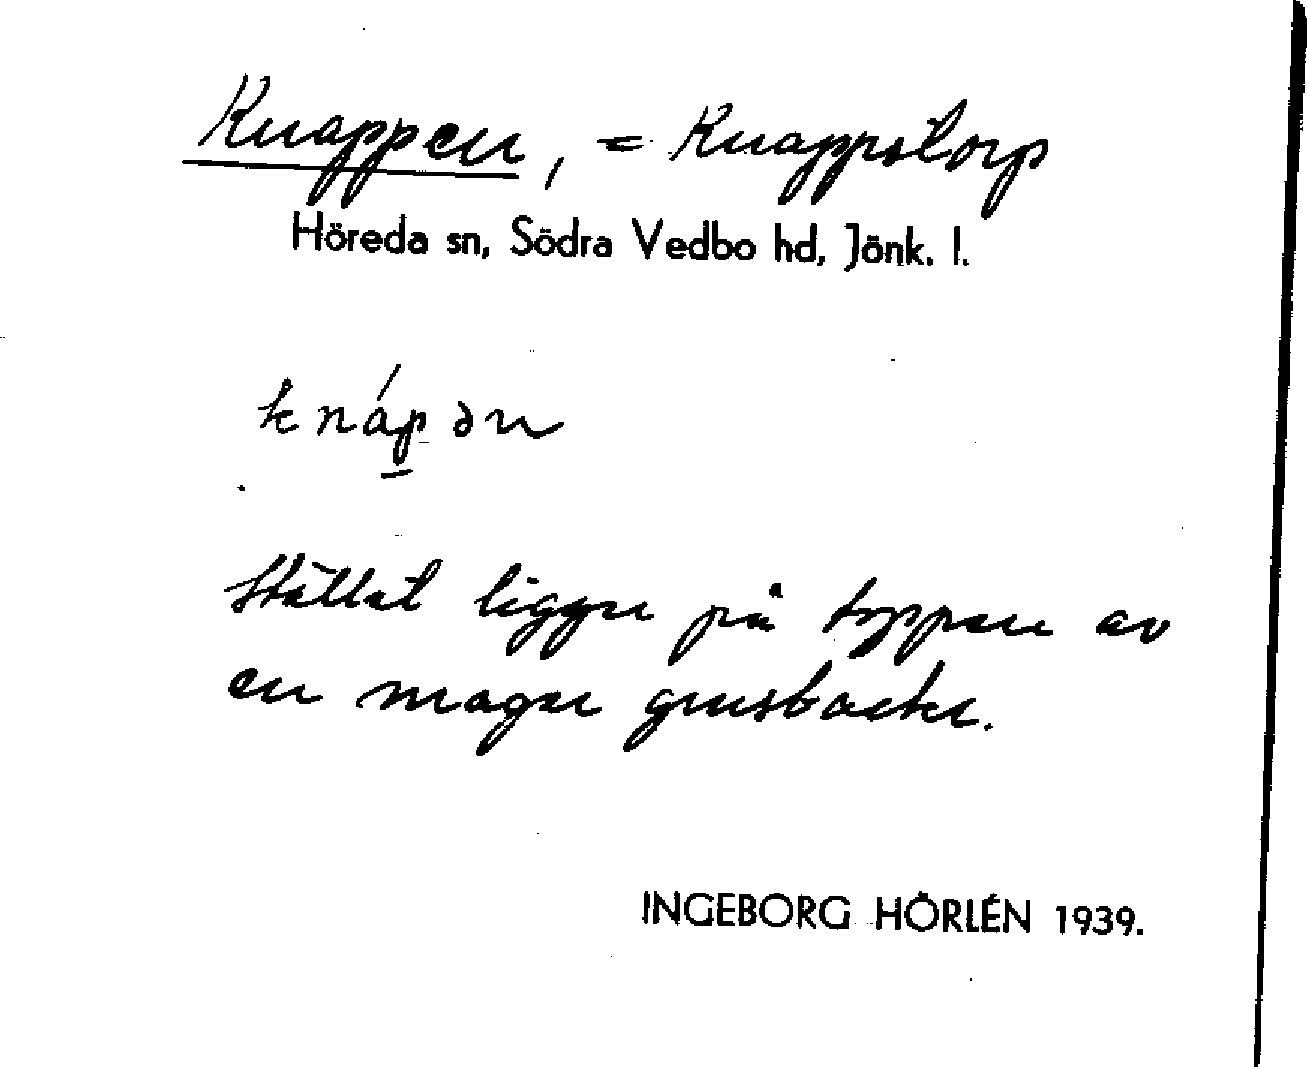 Knappen, = Knappstorp
Höreda sn, Södra Vedbo hd, Jönk. l.
knáp̠ ən
Stället ligger på toppen av
en mager grusbacke.
INGEBORG HÖRLÉN 1939.